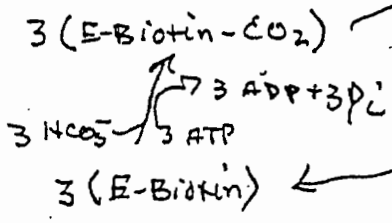 3 (E-Biotin-CO₂)
3 ADP + 3Pi
3 HCO₃⁻ 3 ATP
3 (E-Biotin)